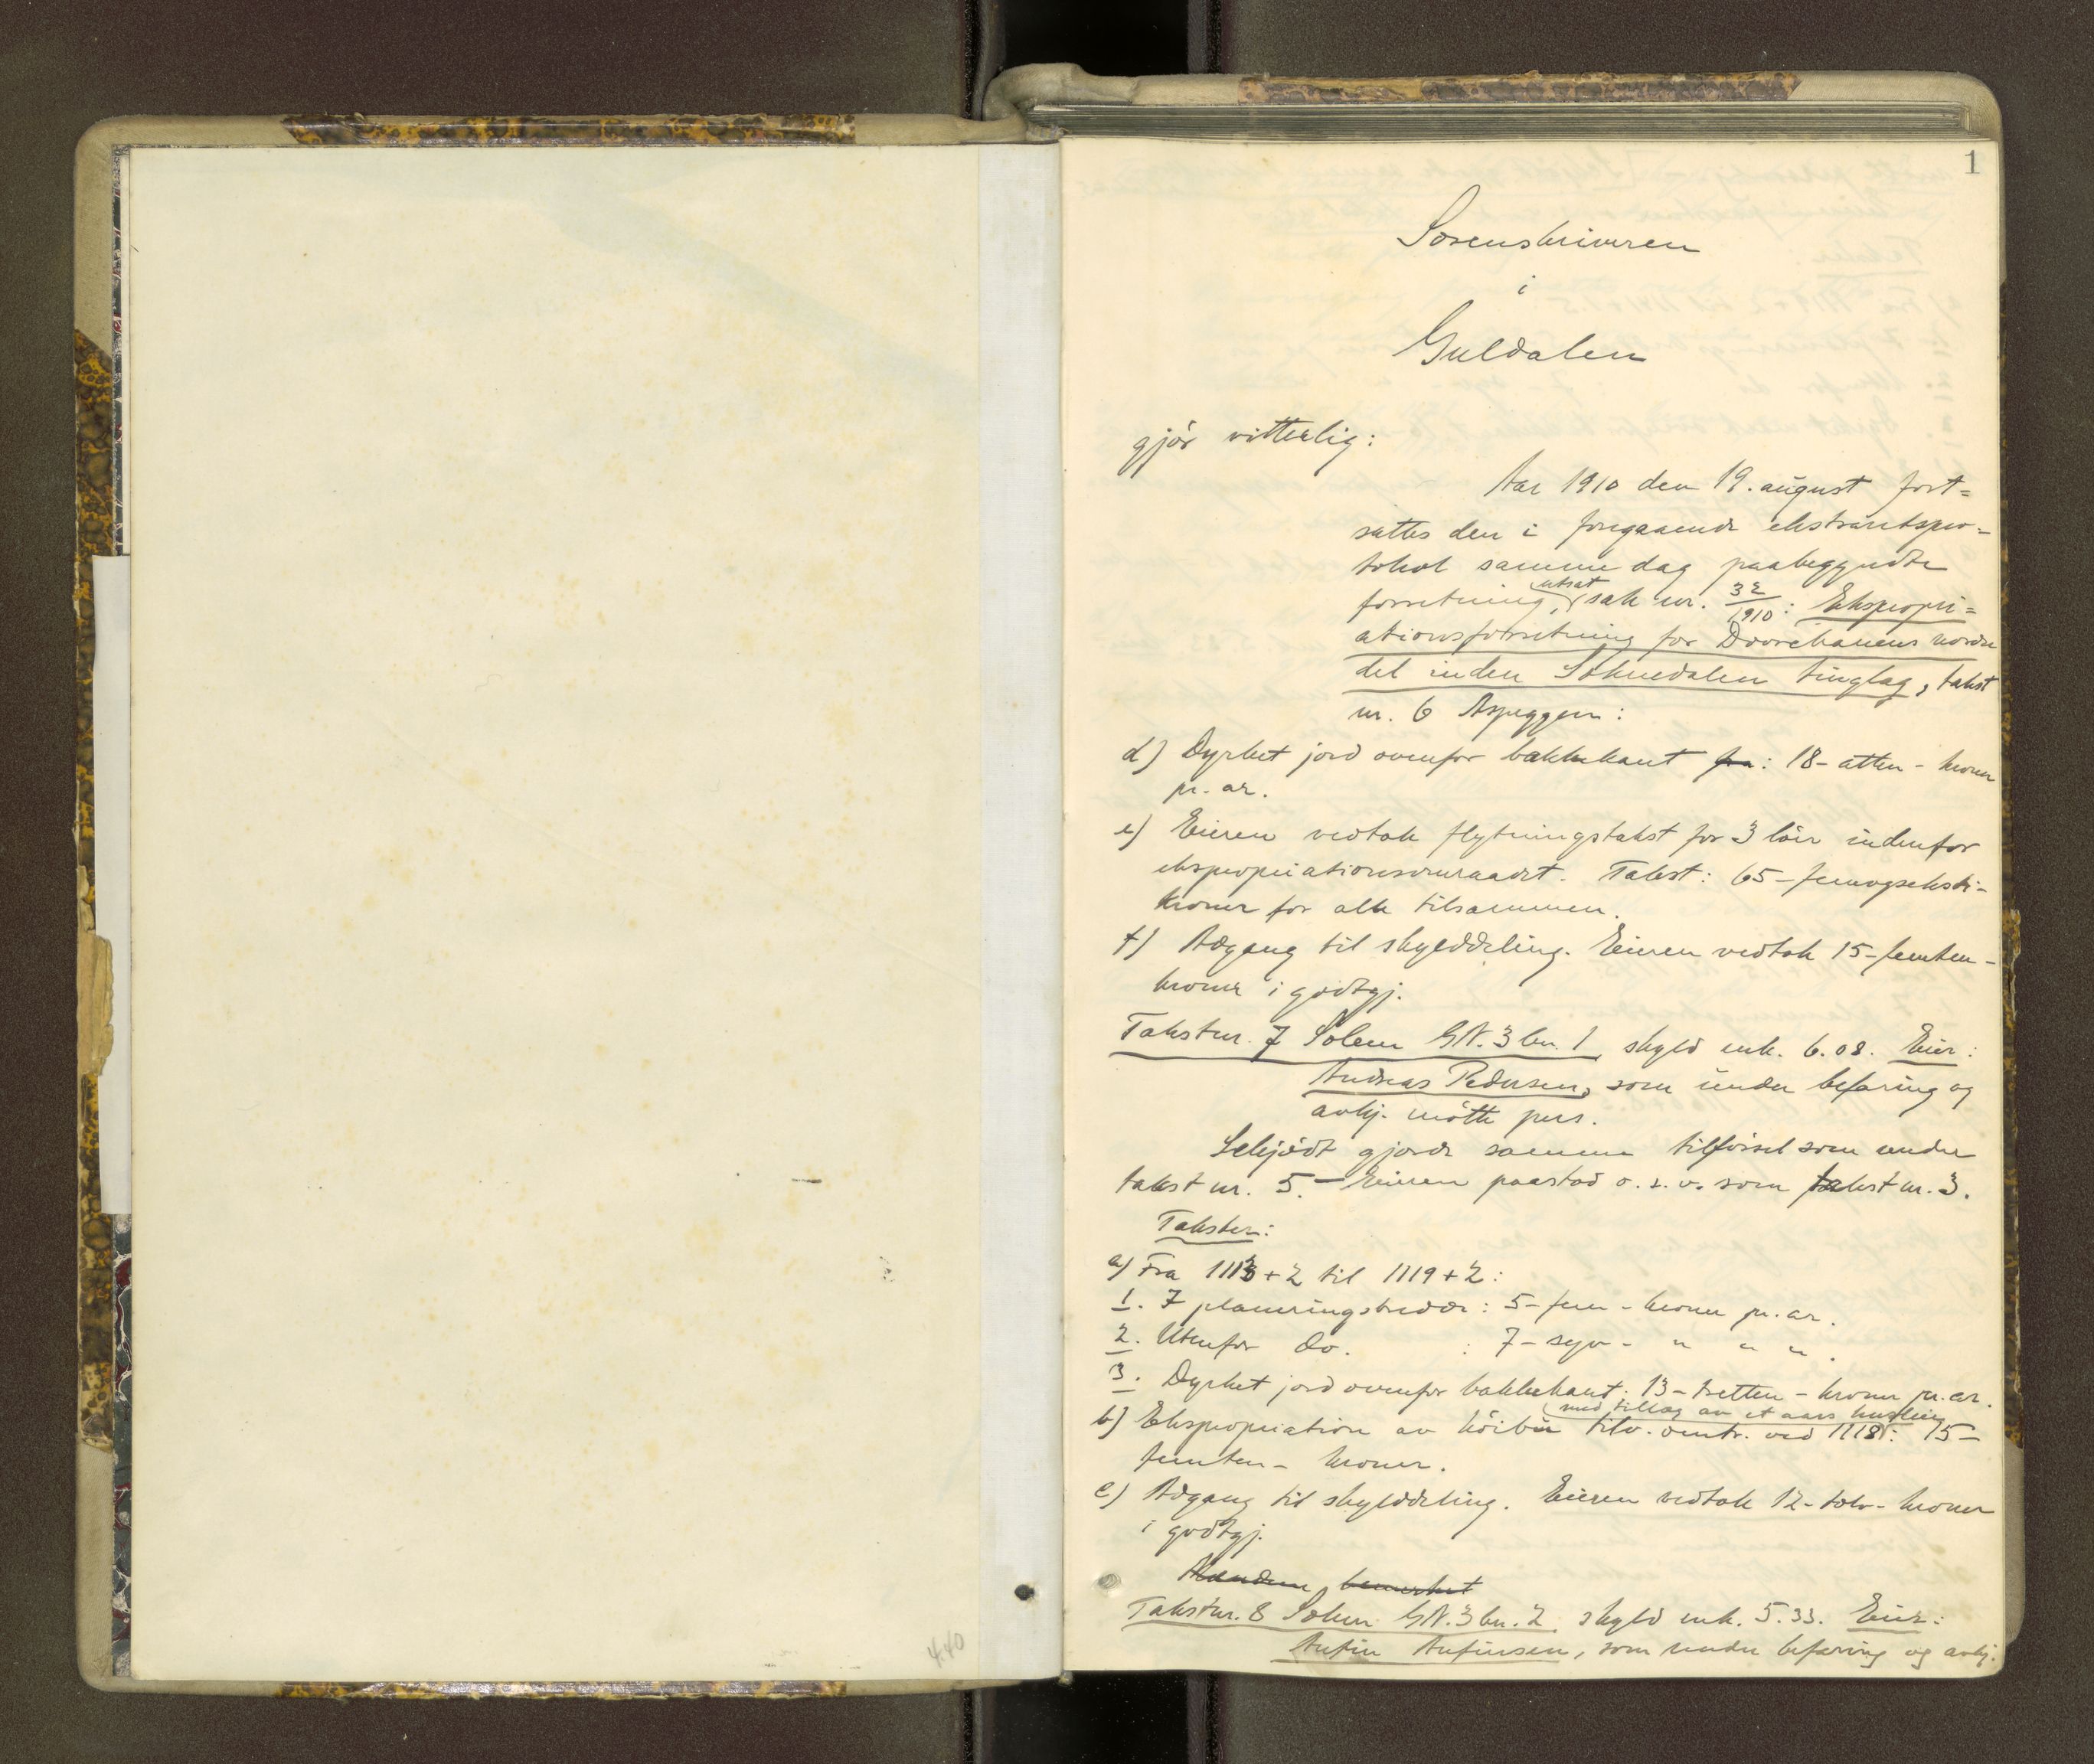 1
Sorenskriveren
i
Guldalen
gjör vitterlig:
Aar 1910 den 19. august fort=
sattes den i foregaaende ekstraretspro-
tokol samme dag paabegyndte
utsat
forretning, sak nr. 32/1910: Ekspropri=
ationsforretning for Dovrebanens nordre
del inden Soknedalen tinglag, takst
nr. 6 Aspeggen:
d) Dyrket jord ovenfor bakkekant fra: 18 - atten - kroner
pr. ar.
e) Eieren vedtok flytningstakst for 3 löer indenfor
ekspropriationsomraadet. Takst: 65 - femogseksti-
kroner for alle tilsammen.
f) Adgang til skylddeling. Eieren vedtok 15 - femten -
kroner i godtgj.
Takstnr. 7 Solem GN. 3 bn. 1, skyld mk. 6.08. Eier:
Andreas Pedersen, som under befaring og
avhj. mötte pers.
Selejödt gjorde samme tilförsel som under
takst nr. 5. - Eieren paastod o.s.v. som takst nr. 3.
Takster:
a) Fra 1113 + 2 til 1119 + 2:
1. I planeringsbredde: 5 - fem - kroner pr. ar.
2. Utenfor do. : 7 - syv - " " ".
3. Dyrket jord ovenfor bakkekant: 13 - tretten - kroner pr. ar.
med tillæg av et aars husleie
b) Ekspropriation av höibu tilv. omtr. ved 1118: 15 -
femten - kroner.
c) Adgang til skylddeling. Eieren vedtok 12 - tolv - kroner
i godtgj.
bemerket
Takstnr. 8 Solem GN. 3 bn. 2, skyld mk. 5.33. Eier:
Anfin Anfinsen, som under befaring og avhj.
4.40